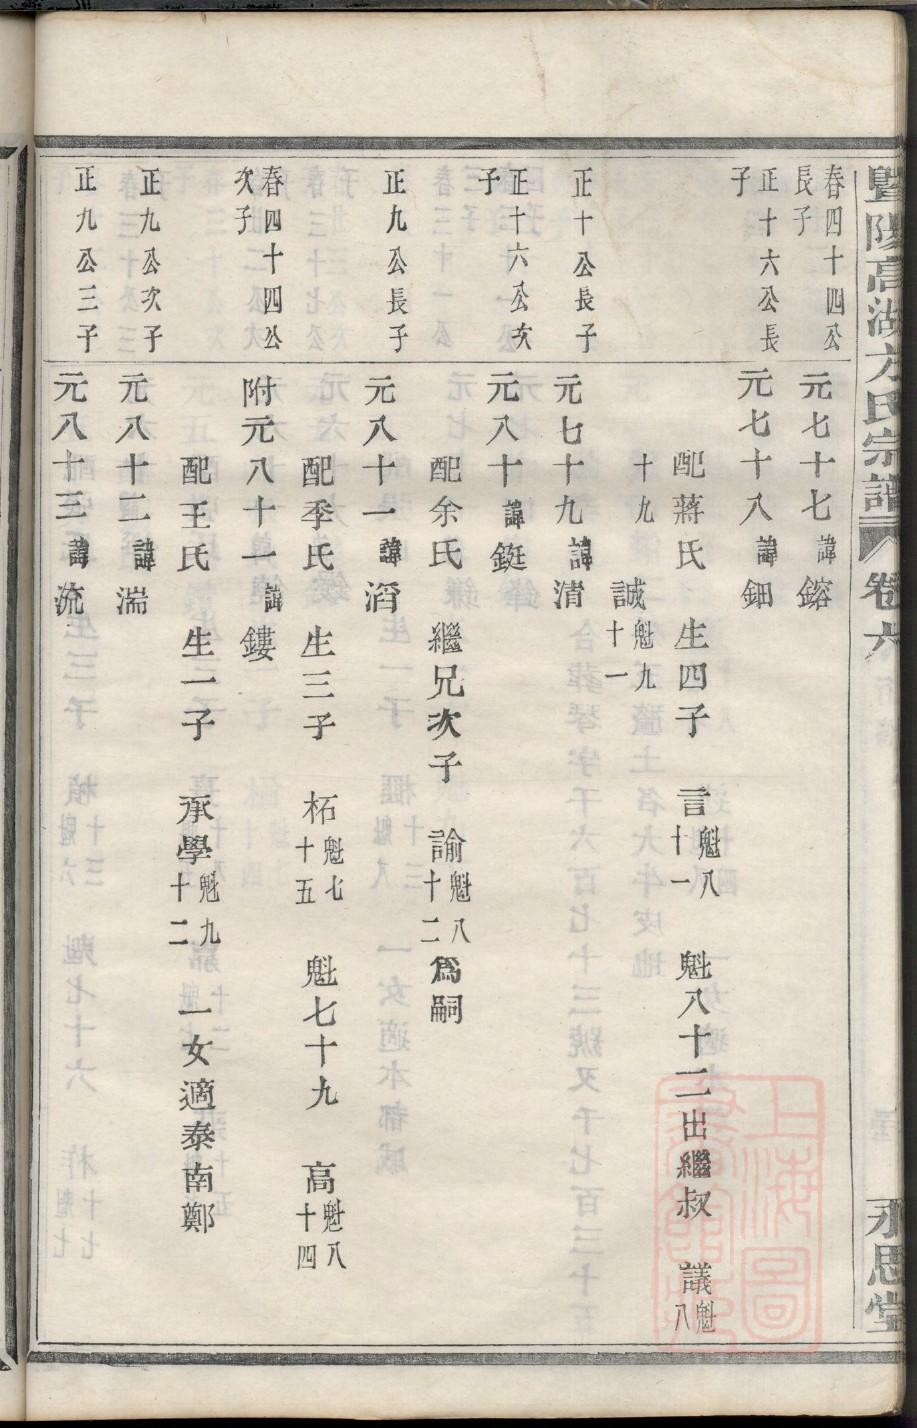 暨陽高湖方氏宗譜 卷六 永思堂
春四十四公長子 元七十七 諱鎔
正十六公長子 元七十八 諱鈿
配蔣氏 生四子 言魁八十一 魁八十二出繼叔 議魁八
十九 誠魁九十一
正十公長子 元七十九 諱清
正十六公次子 元八十 諱鋌
配余氏 繼兄次子 諭魁八十二爲嗣
正九公長子 元八十一 諱滔
配季氏 生三子 柘魁七十五 魁七十九 高魁八十四
春四十四公次子 附元八十一 諱鏤
配王氏 生一子 承學魁九十二 一女適泰南鄭
正九公次子 元八十二 諱湍
正九公三子 元八十三 諱流
上海圖書館藏